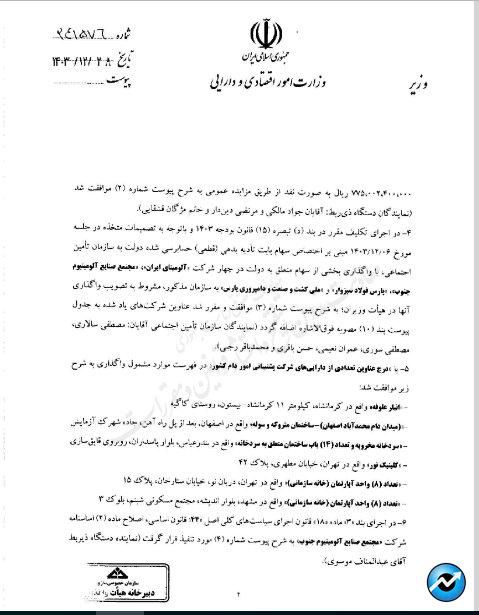 شماره ۲۴۱۵۷۶
تاریخ ۱۴۰۳/۱۲/۲۸
پیوست
جمهوری اسلامی ایران
وزارت امور اقتصادی و دارایی
وزیر
۷۷۵،۰۰۲،۴۰۰،۰۰۰ ریال به صورت نقد از طریق مزایده عمومی به شرح پیوست شماره (۲) موافقت شد
(نمایندگان دستگاه ذی‌ربط: آقایان جواد مالکی و مرتضی دین‌دار و خانم مژگان قشقایی).
۴- در اجرای تکلیف مقرر در بند (د) تبصره (۱۵) قانون بودجه ۱۴۰۳ و باتوجه به تصمیمات متخذه در جلسه
مورخ ۱۴۰۳/۱۲/۰۶ مبنی بر اختصاص سهام بابت تأدیه بدهی (قطعی) حسابرسی شده دولت به سازمان تأمین
اجتماعی، با واگذاری بخشی از سهام متعلق به دولت در چهار شرکت «آلومینای ایران»، «مجتمع صنایع آلومینیوم
جنوب»، «پارس فولاد سبزوار» و «ملی کشت و صنعت و دامپروری پارس» به سازمان مذکور، مشروط به تصویب واگذاری
آنها در هیأت وزیران؛ به شرح پیوست شماره (۳) موافقت و مقرر شد عناوین شرکت‌های یاد شده به جدول
پیوست بند (۱۰) مصوبه فوق‌الاشاره اضافه گردد (نمایندگان سازمان تأمین اجتماعی آقایان: مصطفی سالاری،
مصطفی سوری، عمران نعیمی، حسن باقری و محمدباقر رجبی).
۵- با «درج عناوین تعدادی از دارایی‌های شرکت پشتیبانی امور دام کشور» در فهرست موارد مشمول واگذاری به شرح
زیر موافقت شد:
-انبار علوفه» واقع در کرمانشاه، کیلومتر ۱۱ کرمانشاه- بیستون، روستای کاگیه
-(میدان دام محمدآباد اصفهان)- ساختمان متروکه و سوله» واقع در اصفهان، بعد از پل راه آهن، جاده شهرک آزمایش
-«سردخانه مخروبه و تعداد (۱۴) باب ساختمان متعلق به سردخانه» واقع در بندرعباس، بلوار پاسداران، روبروی قایق‌سازی
-«کلینیک نور» واقع در تهران، خیابان مطهری، پلاک ۴۲
-«تعداد (۸) واحد آپارتمان (خانه سازمانی)» واقع در تهران، دریان نو، خیابان ستارخان، پلاک ۱۵
-«تعداد (۸) واحد آپارتمان (خانه سازمانی)» واقع در مشهد، بلوار اندیشه، مجتمع مسکونی شبنم، بلوک ۳
۶- در اجرای بند «۳» ماده «۱۸» قانون اجرای سیاست‌های کلی اصل «۴۴» قانون اساسی، اصلاح ماده (۲) اساسنامه
شرکت «مجتمع صنایع آلومینیوم جنوب» به شرح پیوست شماره (۴) مورد تنفیذ قرار گرفت (نماینده دستگاه ذیربط
آقای عبدالمناف موسوی).
سازمان خصوصی‌سازی
دبیرخانه هیأت
۲